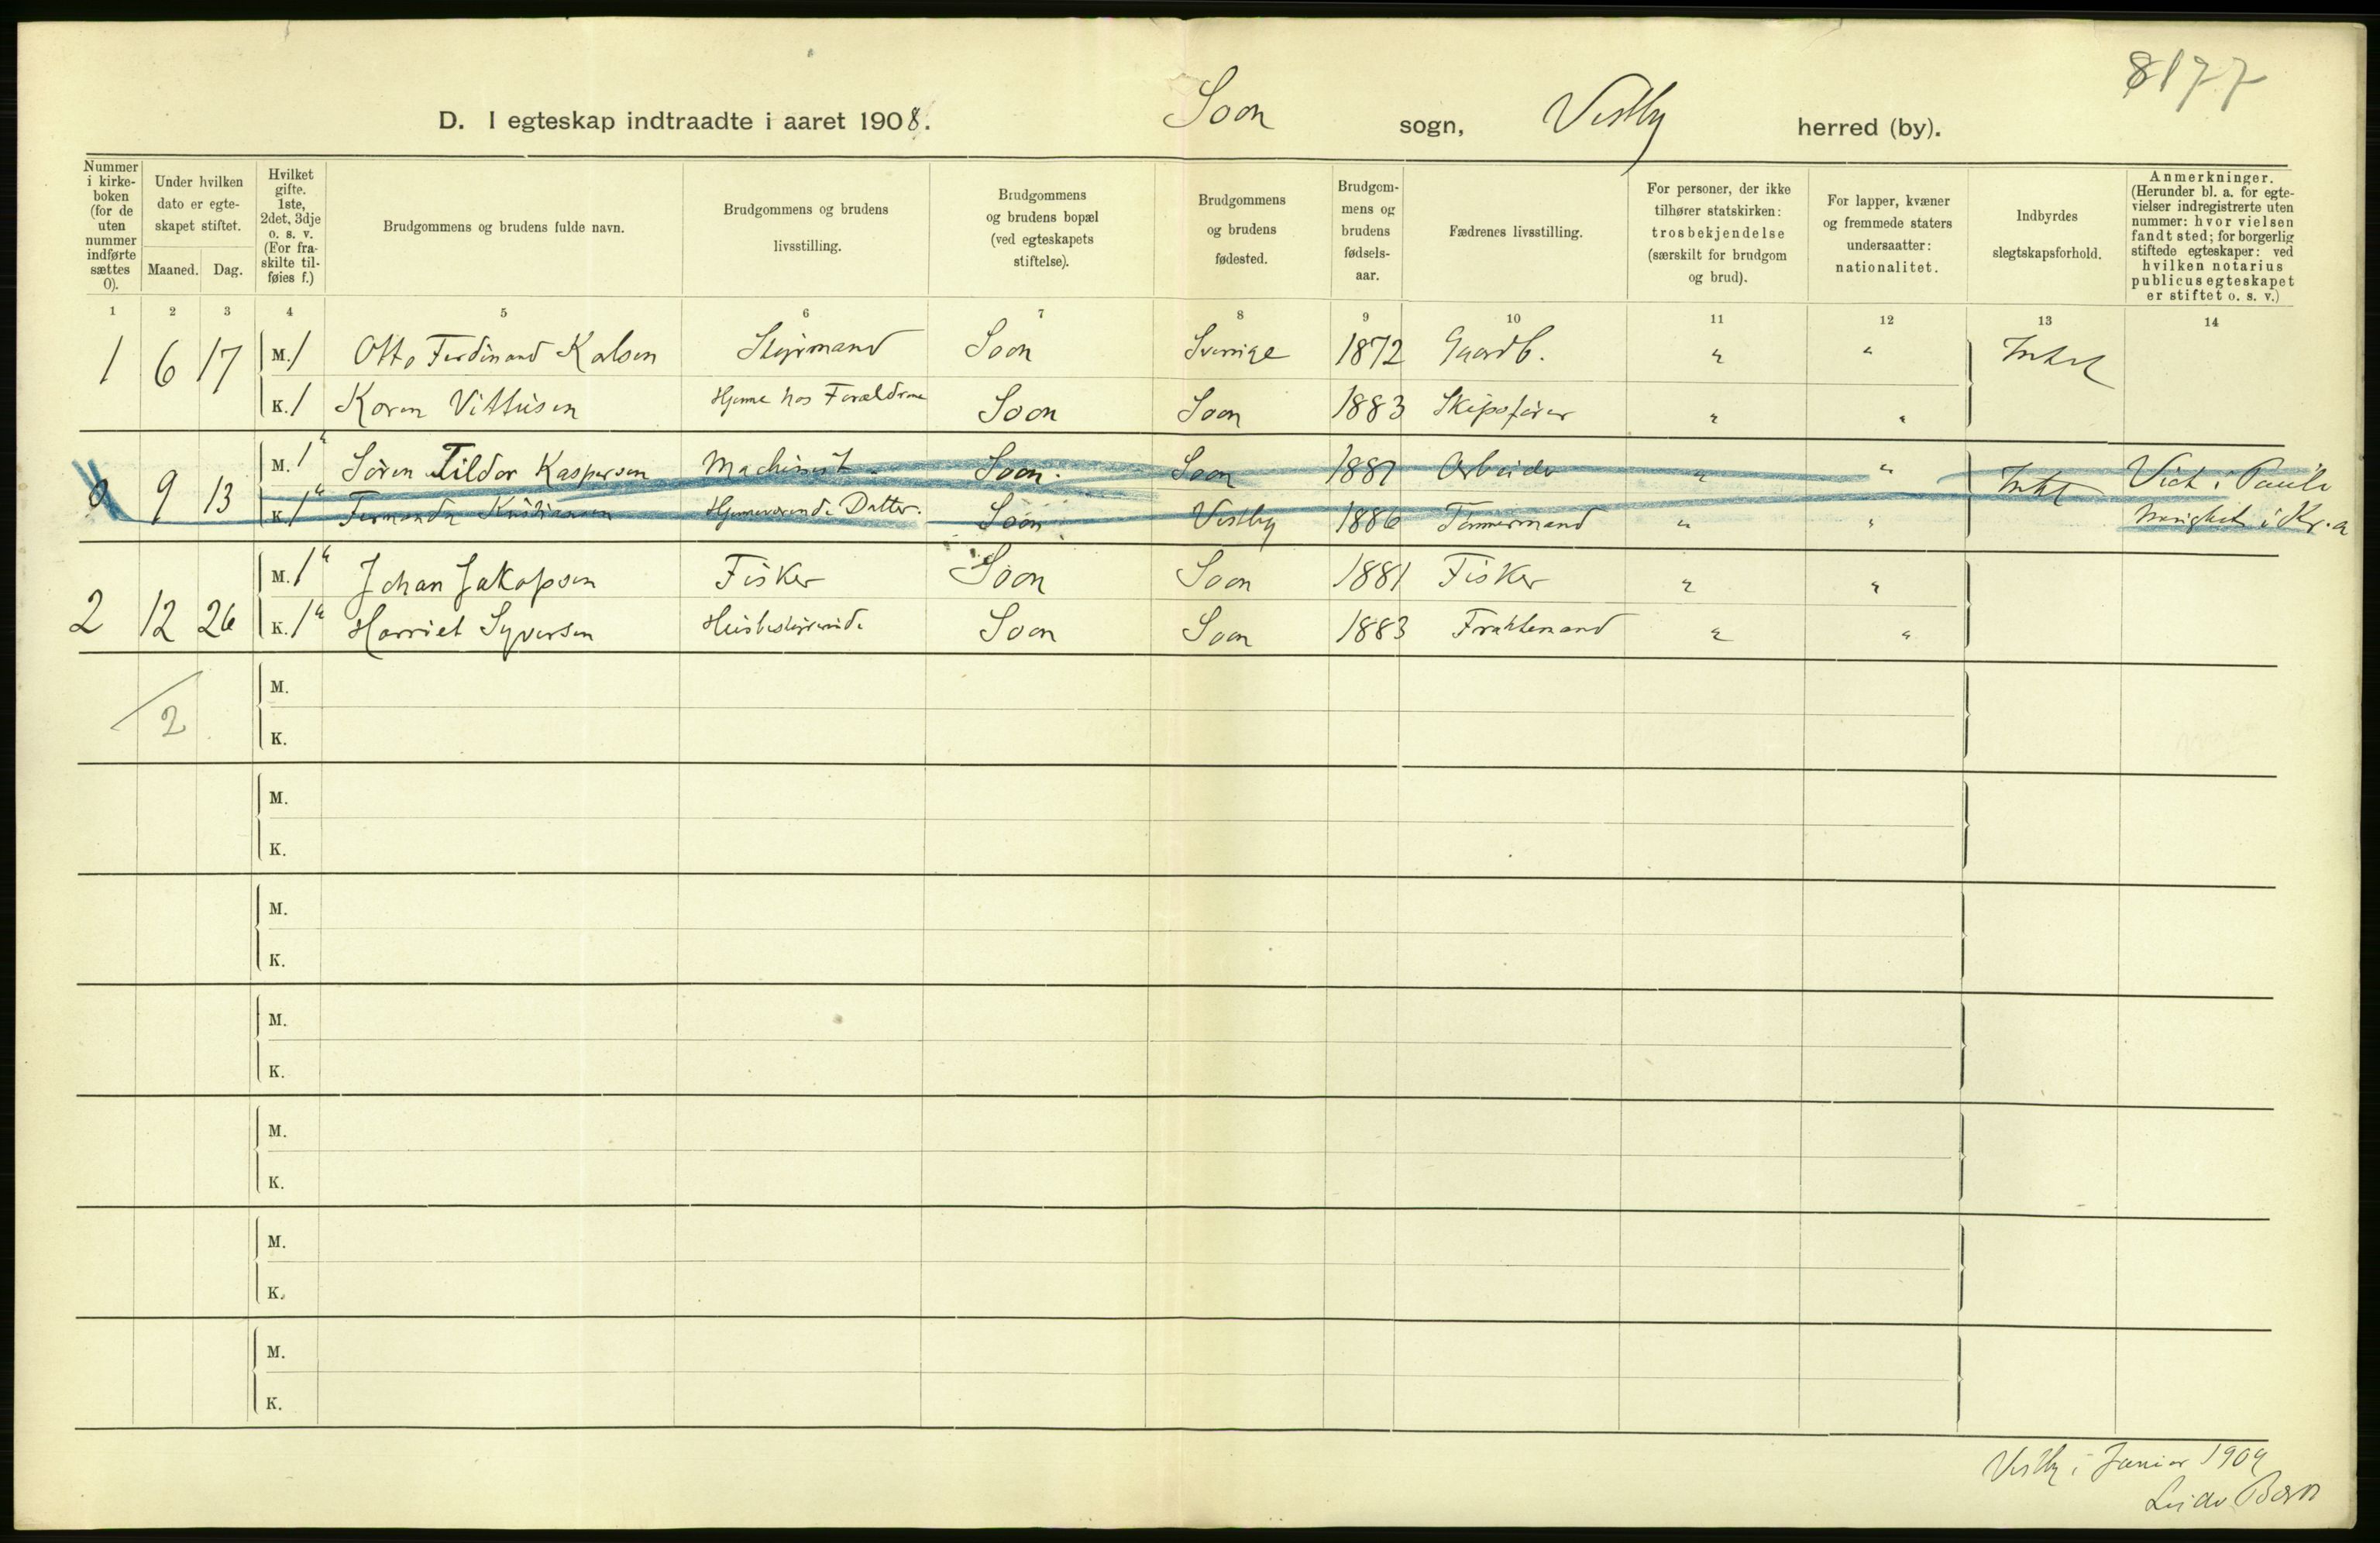 8177
D. I egteskap indtraadte i aaret 1908. Soon sogn, Vestby herred (by).
Nummer i kirke-boken (for de uten nummer indførte sættes 0).
Under hvilken dato er egte-skapet stiftet.
Maaned. Dag.
Hvilket gifte. 1ste, 2det, 3dje o. s. v. (For fra-skilte til-føies f.)
Brudgommens og brudens fulde navn.
Brudgommens og brudens livsstilling.
Brudgommens og brudens bopæl (ved egteskapets stiftelse).
Brudgommens og brudens fødested.
Brudgom-mens og brudens fødsels-aar.
Fædrenes livsstilling.
For personer, der ikke tilhører statskirken: trosbekjendelse (særskilt for brudgom og brud).
For lapper, kvæner og fremmede staters undersaatter: nationalitet.
Indbyrdes slegtskapsforhold.
Anmerkninger. (Herunder bl. a. for egte-vielser indregistrerte uten nummer: hvor vielsen fandt sted; for borgerlig stiftede egteskaper: ved hvilken notarius publicus egteskapet er stiftet o. s. v.)
1 2 3 4 5 6 7 8 9 10 11 12 13 14
1 6 17 M. 1 Otto Ferdinand Kalsen Styrmand Soon Sverrige 1872 Gaardb. " " Intet
K. 1 Karen Vittusen Hjemme hos Forældrene Soon Soon 1883 Skipsfører " "
0 9 13 M. 1" Sören Tildor Kaspersen Machinist Soon. Soon 1887 Arbeider " " Intet Viet i Pauls
K. 1" Fernanda Kristiansen Hjemmeværende Datter. Soon Vestby 1886 Tömmermand " " menighet i Kr.a
2 12 26 M. 1" Johan Jakopsen Fisker Soon Soon 1881 Fisker " "
K. 1" Harriet Syversen Husbestyrerinde Soon Soon 1883 Fraktemand " "
M.
2
K.
M.
K.
M.
K.
M.
K.
M.
K.
M.
K.
M.
K.
Vestby i Januar 1909